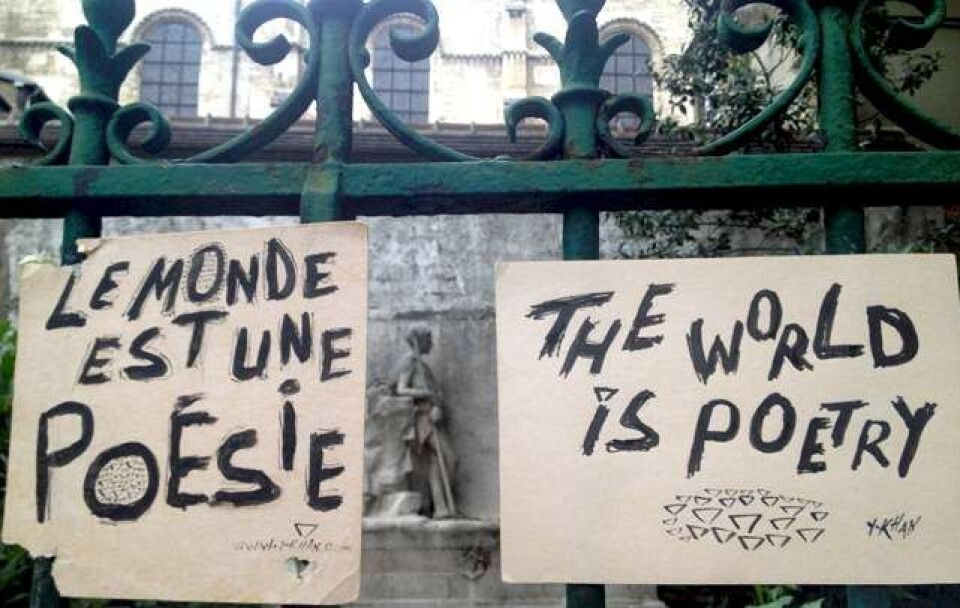 LE MONDE
EST UNE
POÉSIE
THE WORLD
IS POETRY
Y-KHAN